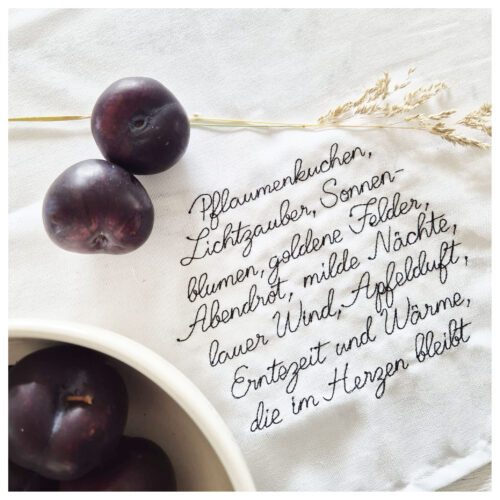 Pflaumenkuchen,
Lichtzauber, Sonnen-
blumen, goldene Felder,
Abendrot, milde Nächte,
lauer Wind, Apfelduft,
Erntezeit und Wärme,
die im Herzen bleibt